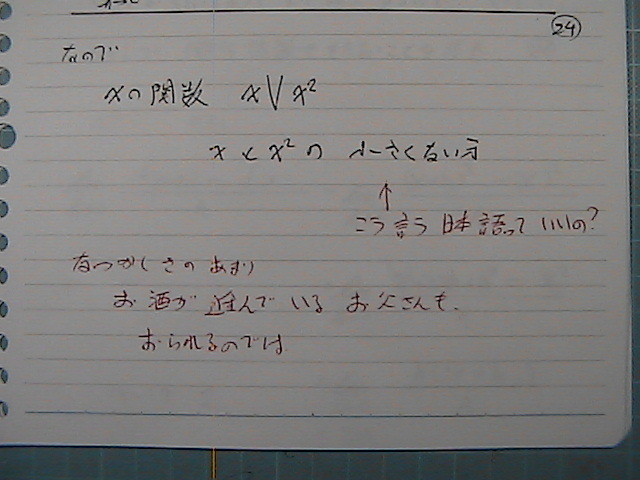 ㉔
なので
xの関数 x∨x²
xとx²の 小さくない方
↑
こう言う日本語っていいの?
なつかしさのあまり
お酒が進んでいるお父さんも、
おられるのでは